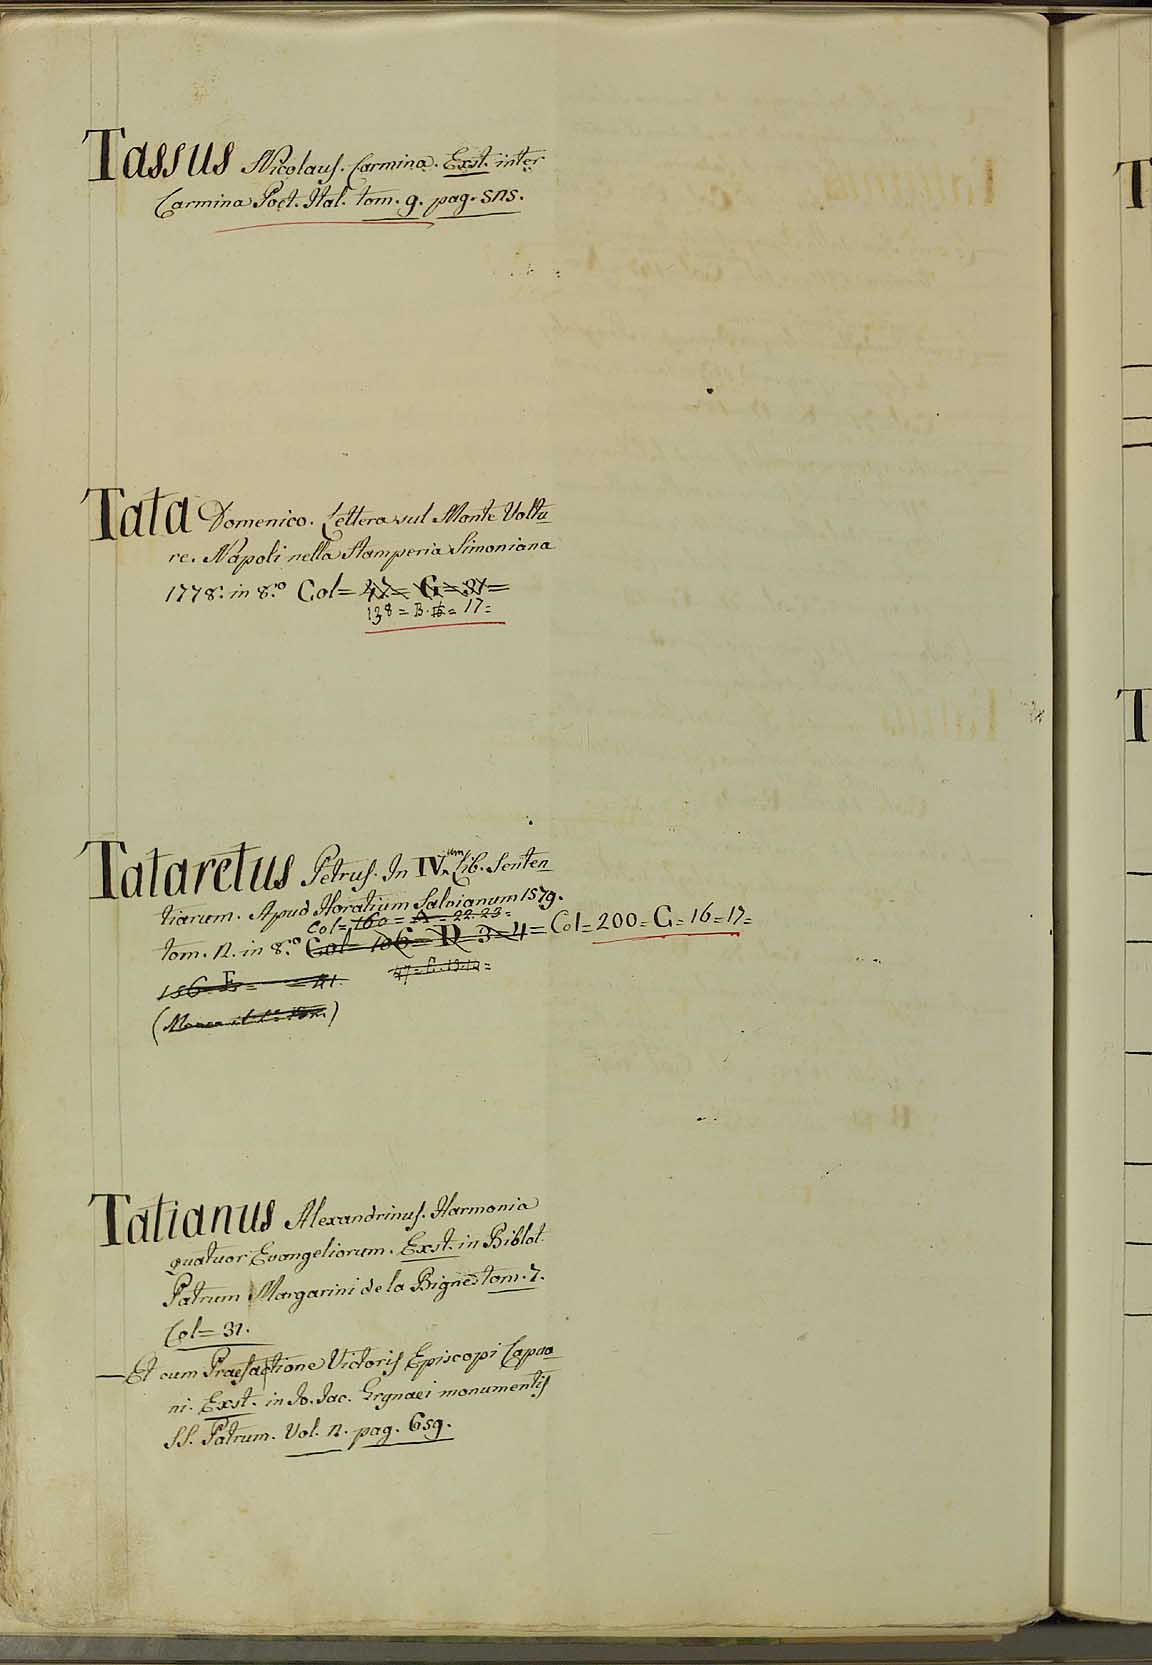 Tassus Nicolaus. Carmina. Exst. inter
Carmina Poet. Ital. tom. 9. pag. 525.
Tata Domenico. Lettera sul Monte Voltu
re. Napoli nella Stamperia Simoniana
1778. in 8.º Col= 47= G=31=
138= B. = 17=
Tataretus Petrus. In IV.um Lib. Senten
tiarum. Apud Horatium Salvianum 1579.
Col= 160= A= 22.23=
tom. 2. in 8.º Col= 106= D= 3=4= Col=200=G=16=17=
156. E= =41.
(Manca il 1.º Tom.)
Tatianus Alexandrinus. Harmonia
quatuor Evangeliorum. Exst. in Bibliot.
Patrum Margarini de la Bigne tom. 7.
Col= 31.
— Et cum Praefactione Victoris Episcopi Capua
ni. Exst. in Jo. Jac. Grynaei monumentis
SS. Patrum. Vol. 2. pag. 659.